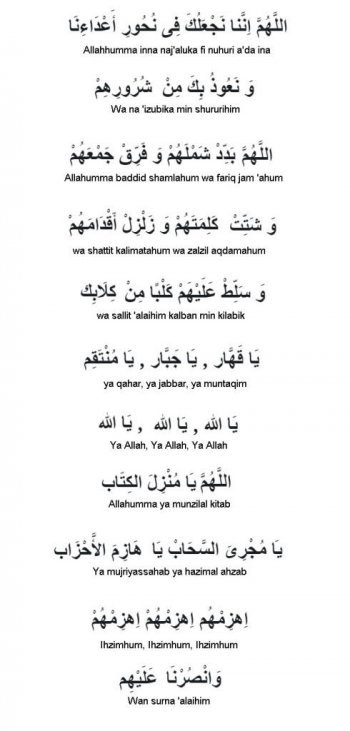 اللَّهُمَّ اِنَّنا نَجْعَلُكَ فِى نُحُورِ أَعْدَاءِنَا
Allahhumma inna naj'aluka fi nuhuri a'da ina
وَ نَعُوذُ بِكَ مِنْ شُرُورِهِمْ
Wa na 'izubika min shururihim
اللَّهُمَّ بَدِّدْ شَمْلَهُمْ وَ فَرِّقْ جَمْعَهُمْ
Allahumma baddid shamlahum wa fariq jam 'ahum
وَ شَتِّتْ كَلِمَتَهُمْ وَ زَلْزِلْ أَقْدَامَهُمْ
wa shattit kalimatahum wa zalzil aqdamahum
وَ سَلِّطْ عَلَيْهِمْ كَلْبًا مِنْ كِلَابِكَ
wa sallit 'alaihim kalban min kilabik
يَا قَهَّار , يَا جَبَّار , يَا مُنْتَقِم
ya qahar, ya jabbar, ya muntaqim
يَا الله , يَا الله , يَا الله
Ya Allah, Ya Allah, Ya Allah
اللَّهُمَّ يَا مُنْزِلَ الكِتَاب
Allahumma ya munzilal kitab
يَا مُجْرِىَ السَّحَابْ يَا هَازِمَ الأَحْزَاب
Ya mujriyassahab ya hazimal ahzab
اِهْزِمْهُم اِهْزِمْهُمْ اِهْزِمْهُمْ
Ihzimhum, Ihzimhum, Ihzimhum
وَانْصُرْنَا عَلَيْهِم
Wan surna 'alaihim